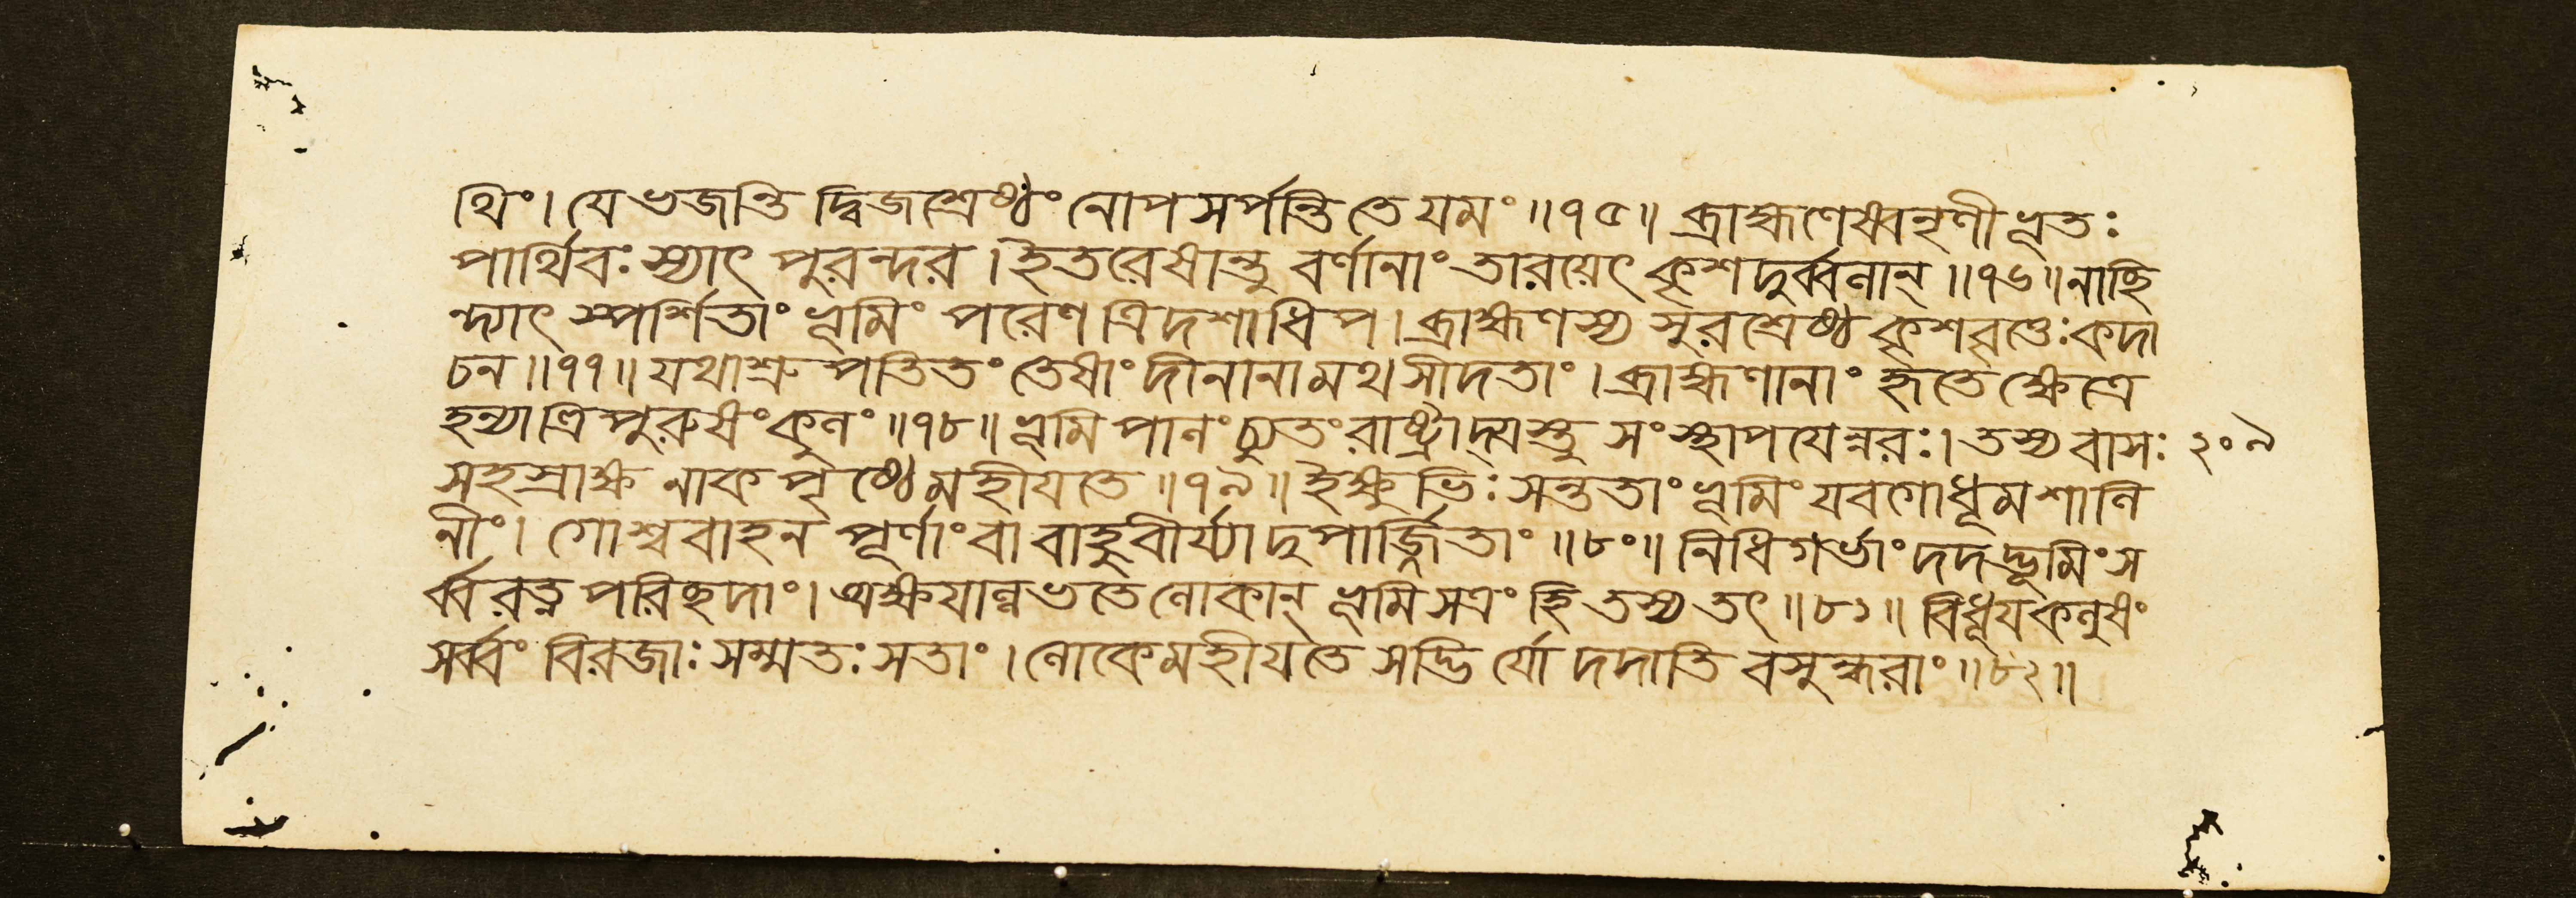 থিং। যে ভজন্তি দ্বিজশ্রেষ্ঠং নোপসর্পন্তি তে যমং॥৭৫॥ ব্রাহ্মণেষ্বনৃণীভূতঃ
পার্থিবঃ স্যাৎ পুরন্দর। ইতরেষান্তু বর্ণানাং তারয়েৎ কৃশদুর্ব্বলান্॥৭৬॥ নাচ্ছি
ন্দ্যাৎ স্পর্শিতাং ভূমিং পরেণ ত্রিদশাধিপ। ব্রাহ্মণস্য সুরশ্রেষ্ঠ কৃশবৃত্তেঃ কদা
চন॥৭৭॥ যথাশ্রু পতিতং তেষাং দীনানামথ সীদতাং। ব্রাহ্মণানাং হৃতে ক্ষেত্রে
হন্যাত্ত্রিপুরুষং কুলং॥৭৮॥ ভূমিপালং চ্যুতং রাষ্ট্রাদ্যস্তু সংস্থাপযেন্নরঃ। তস্য বাসঃ
২০৯
সহস্রাক্ষ নাকপৃষ্ঠে মহীযতে॥৭৯॥ ইক্ষুভিঃ সন্ততাং ভূমিং যবগোধূমশালি
নীং। গোশ্ববাহন পূর্ণাং বা বাহুবীর্য্যাদুপার্জ্জিতাং॥৮০॥ নিধিগর্ভাং দদদ্ভূমিং স
র্ব্বরত্নপরিছদাং। অক্ষযান্নভতে লোকান্ ভূমিসত্রং হি তস্য তৎ॥৮১॥ বিধূয কলুষং
সর্ব্বং বিরজাঃ সম্মতঃ সতাং। লোকে মহীযতে সদ্ভি র্যো দদাতি বসুন্ধরাং॥৮২॥